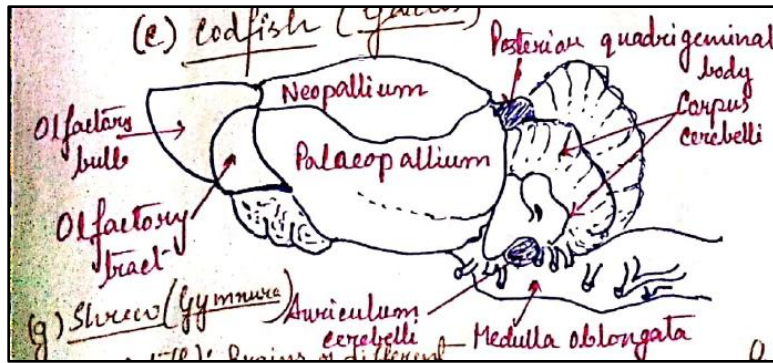 (e) Codfish (Gadus)
Posterior quadrigeminal
body
Neopallium
Corpus
cerebelli
Olfactory
bulb
Palaeopallium
Olfactory
tract
(g) Shrew (Gymnura)
Auriculum
cerebelli
Medulla oblongata
Brains of different